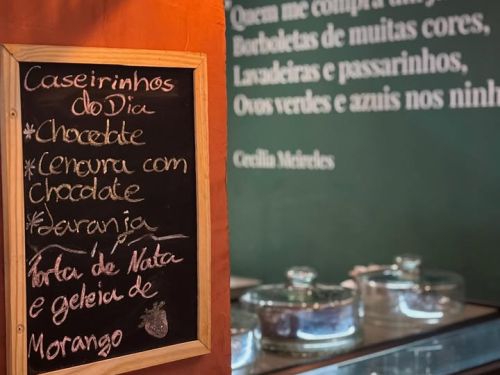 Caseirinhos
do Dia
*Chocolate
*Cenoura com
Chocolate
*Laranja
Torta de Nata
e geleia de
Morango
Quem me compra
Borboletas de muitas cores,
Lavadeiras e passarinhos,
Ovos verdes e azuis nos
Cecília Meireles